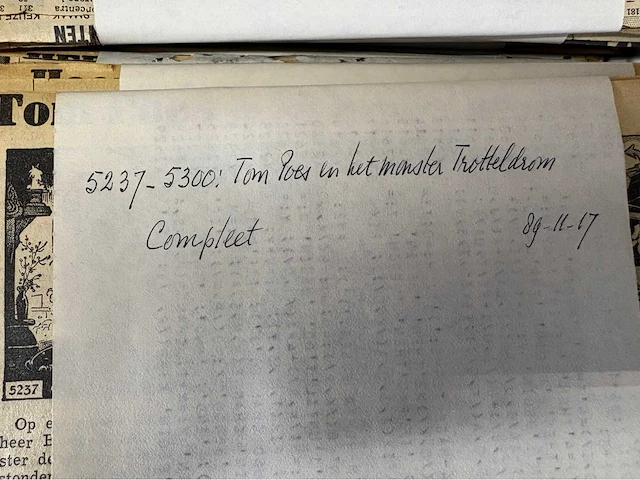 311
NTEN
To
5237-5300: Tom Poes en het monster Trotteldrom
Compleet
89-11-17
5237
Op e
heer B
ster de
stonden